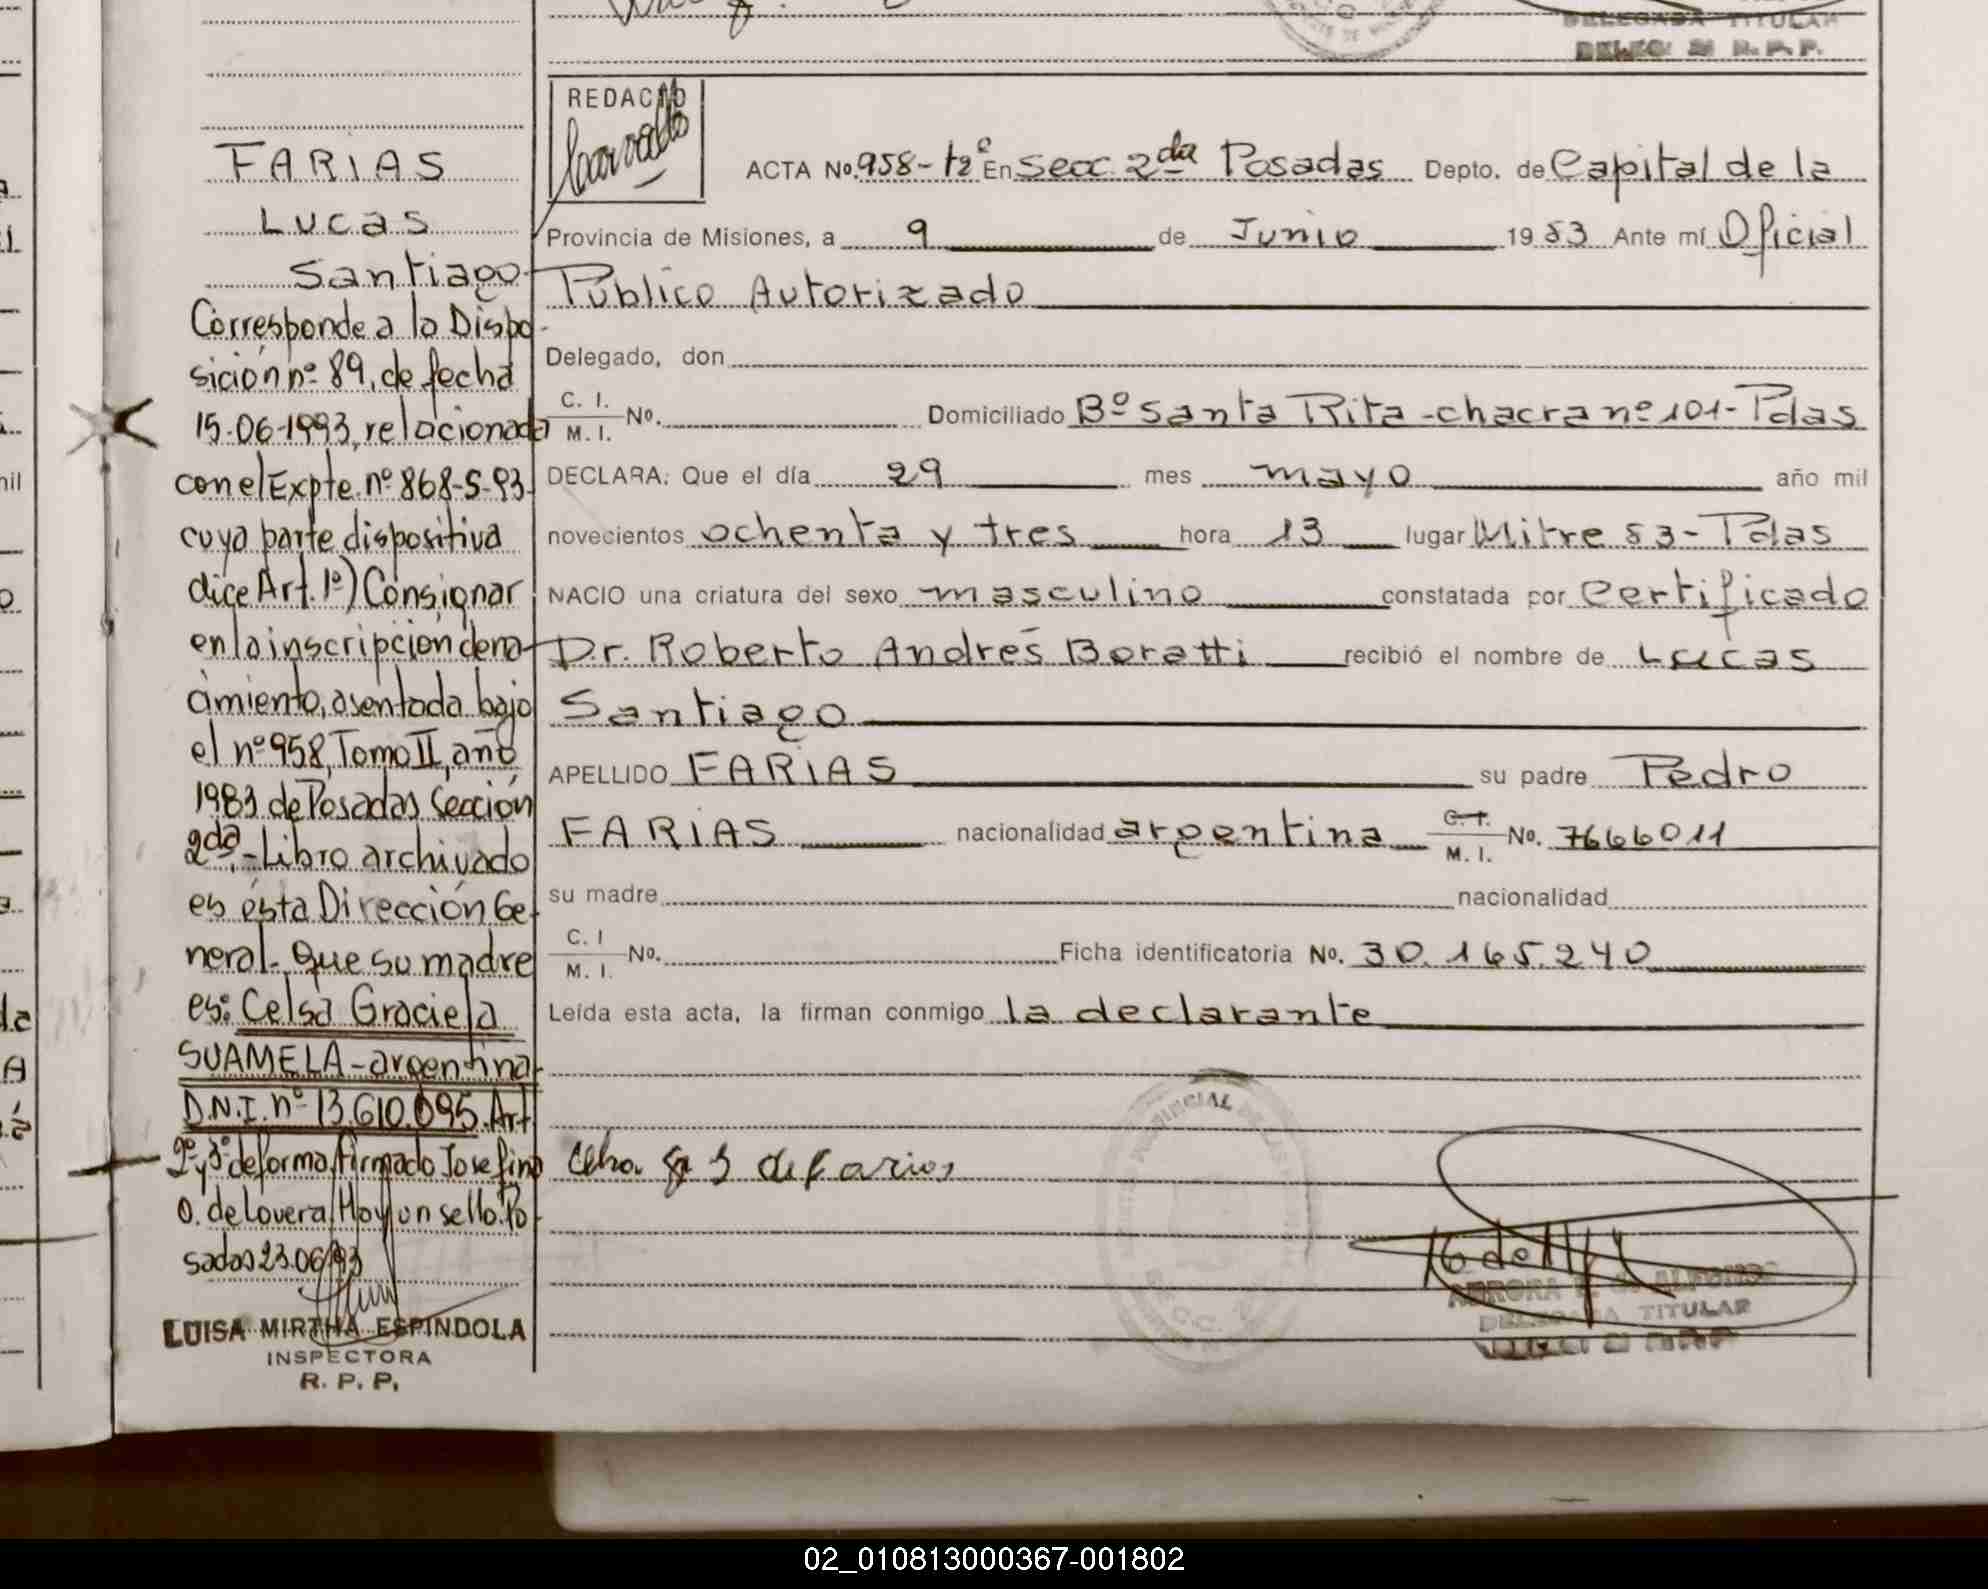 DELEGADA TITULAR
DELEG. 2a R. P. P.
FARIAS
Lucas
Santiago
Corresponde a la Dispo-
sición nº 89, de fecha
15-06-1993, relacionada
con el Expte. nº 868-S-93-
cuya parte dispositiva
dice Art. 1º) Consignar
en la inscripción de na-
cimiento, asentada bajo
el nº 958, Tomo II, año
1983 de Posadas Sección
2da.- Libro archivado
en ésta Dirección Ge-
neral.- Que su madre
es: Celsa Graciela
SUAMELA - argentina-
D.N.I. nº 13.610.095. Art
2º y 3º de forma, firmado Josefina
O. de Lovera. Hay un sello. Po-
sadas 23.06.93
LUISA MIRTHA ESPINDOLA
INSPECTORA
R. P. P.
REDACTO
ACTA No. 958-tº2 En Secc. 2da Posadas Depto. de Capital de la
Provincia de Misiones, a 9 de Junio 1983 Ante mí Oficial
Público Autorizado
Delegado, don
C. I.
M. I. No. Domiciliado Bº Santa Rita - chacra nº 101 - Pdas
DECLARA: Que el día 29 mes mayo año mil
novecientos ochenta y tres hora 13 lugar Mitre 83 - Pdas
NACIO una criatura del sexo masculino constatada por Certificado
Dr. Roberto Andrés Boratti recibió el nombre de Lucas
Santiago
APELLIDO FARIAS su padre Pedro
FARIAS nacionalidad argentina C. I.
M. I. No. 7666011
su madre nacionalidad
C. I
M. I. No. Ficha identificatoria No. 30.165.240
Leída esta acta, la firman conmigo la declarante
de Farias
DELEGADA TITULAR
02_010813000367-001802